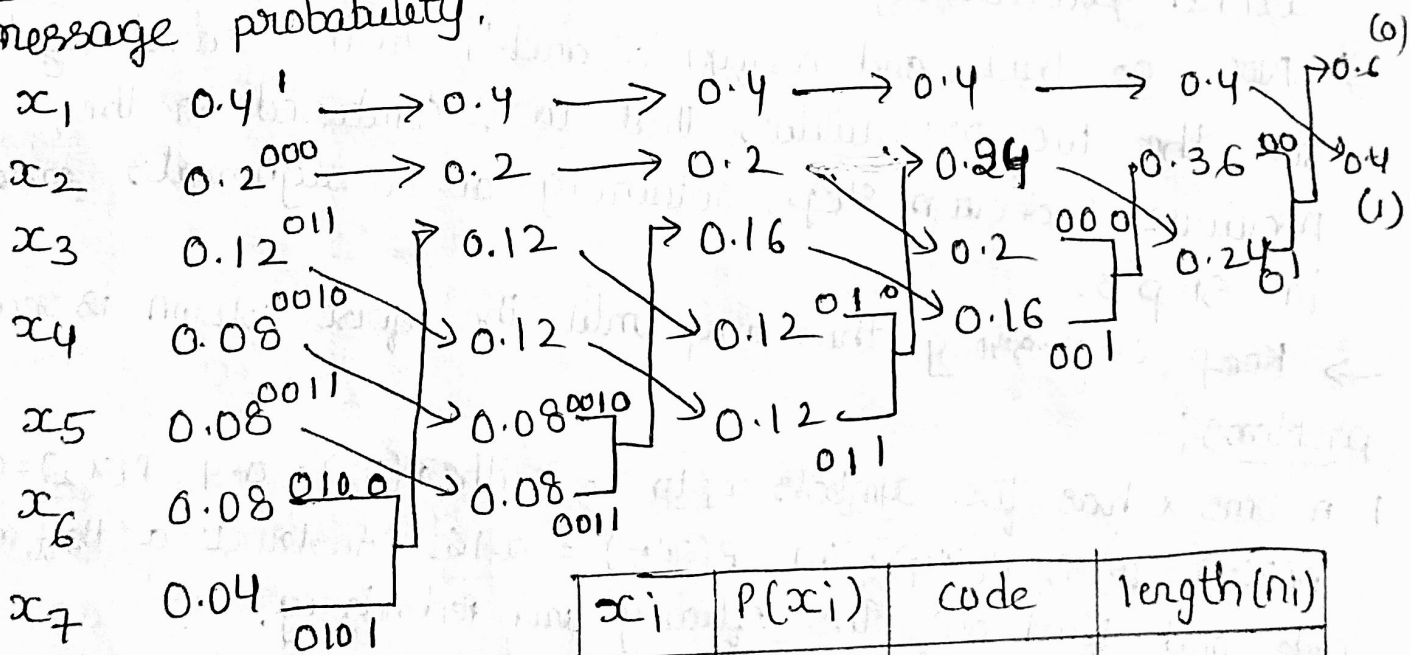 message probability.
(0)
x1 0.4 1 → 0.4 → 0.4 → 0.4 → 0.4 → 0.6
x2 0.2 000 → 0.2 → 0.2 → 0.24 0.36 00 0.4
(1)
x3 0.12 011 0.12 0.16 0.2 000 0.24 01
x4 0.08 0010 0.12 0.12 010 0.16 001
x5 0.08 0011 0.08 0010 0.12 011
x6 0.08 0100 0.08 0011
x7 0.04 0101
xi P(xi) code length(ni)